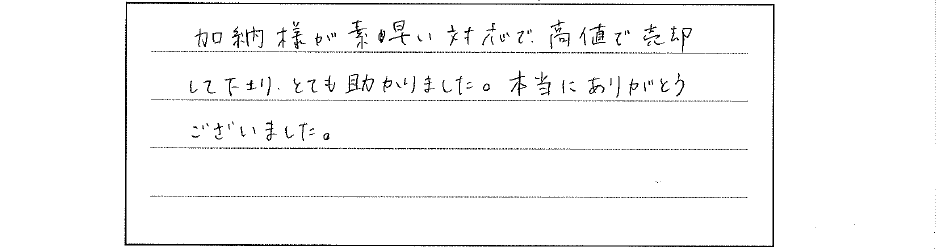 加納様が素早い対応で、高値で売却
して下さり、とても助かりました。本当にありがとう
ございました。